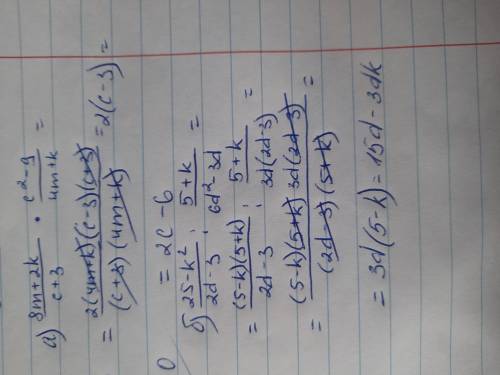 а) 8m+2k/c+3 · c²-9/4m+k =
= 2(4m+k)(c-3)(c+3)/(c+3)(4m+k) = 2(c-3) =
= 2c-6
б) 25-k²/2d-3 : 5+k/6d²-3d =
= (5-k)(5+k)/2d-3 : 5+k/3d(2d-3) =
= (5-k)(5+k)3d(2d-3)/(2d-3)(5+k) =
= 3d(5-k) = 15d-3dk